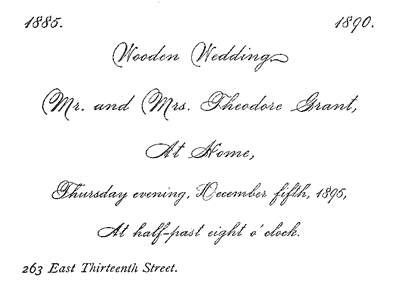 1885. 1890.
Wooden Wedding
Mr. and Mrs. Theodore Grant,
At Home,
Thursday evening, December fifth, 1895,
At half-past eight o'clock.
263 East Thirteenth Street.